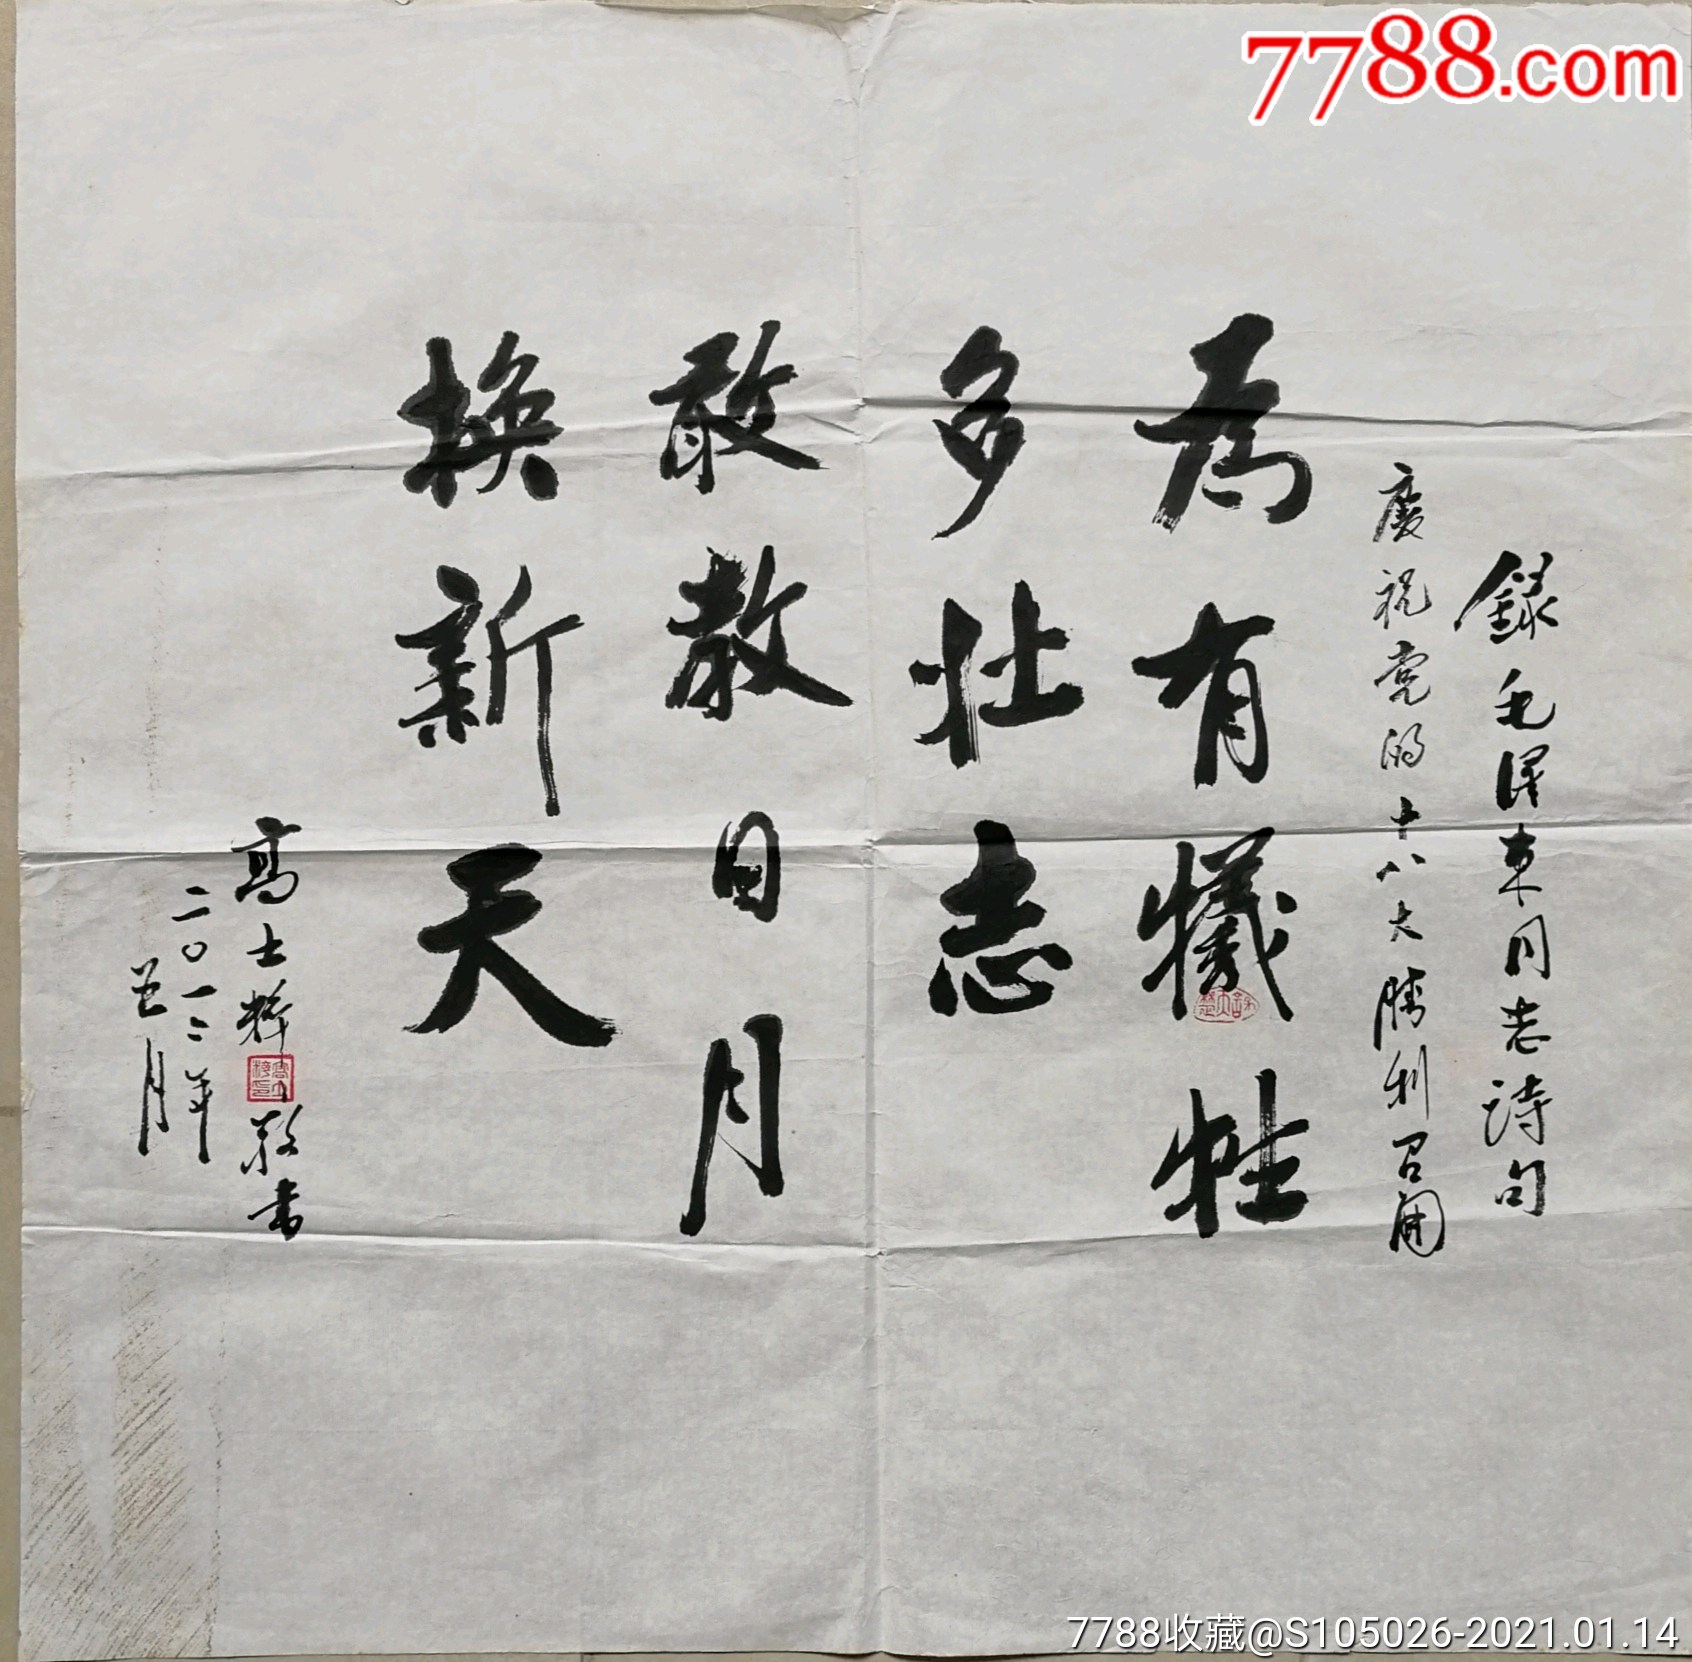 7788.com
錄毛泽東同志诗句
慶祝党的十八大勝利召開
为有犧牲
多壮志
敢教日月
换新天
高士敬书
二〇一二年
月
7788收藏@S105026-2021.01.14